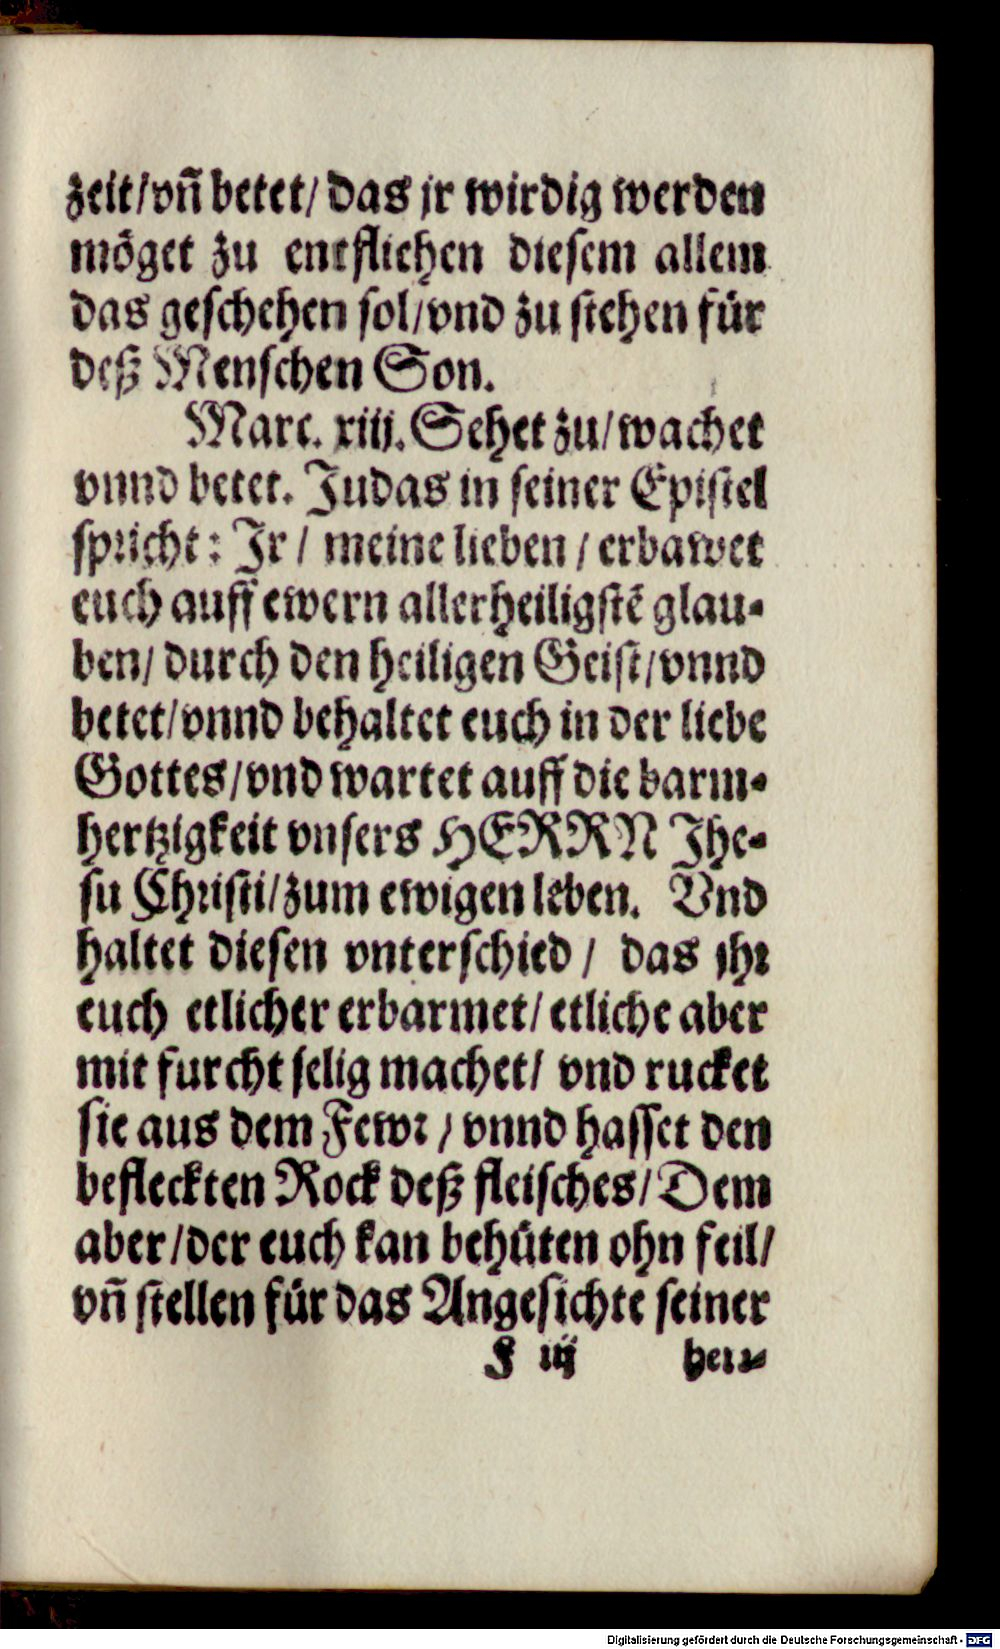 zeit/vñ betet/ das jr wirdig werden
möget zu entfliehen diesem allem
das geschehen sol/vnd zu stehen für
deß Menschen Son.
Marc. xiij. Sehet zu/wachet
vnnd betet. Judas in seiner Epistel
spricht: Jr / meine lieben / erbawet
euch auff ewern allerheiligstẽ glau-
ben/ durch den heiligen Geist/vnnd
betet/vnnd behaltet euch in der liebe
Gottes/vnd wartet auff die barm-
hertzigkeit vnsers HERRN Jhe-
su Christi/zum ewigen leben. Vnd
haltet diesen vnterschied / das jhr
euch etlicher erbarmet/ etliche aber
mit furcht selig machet/ vnd rucket
sie aus dem Fewr / vnnd hasset den
befleckten Rock deß fleisches/Dem
aber/der euch kan behüten ohn feil/
vñ stellen für das Angesichte seiner
F iij her-
Digitalisierung gefördert durch die Deutsche Forschungsgemeinschaft - DFG